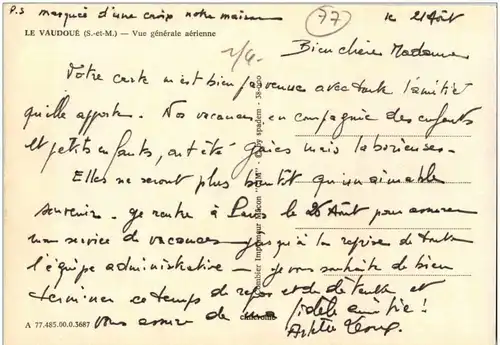 P.S marqué d'une croix notre maison
77
le 21 Août
LE VAUDOUÉ (S.-et-M.) — Vue générale aérienne
Bien chère Madame
Votre carte m'est bien parvenue avec toute l'amitié
qu'elle apporte. Nos vacances en compagnie des enfants
et petits enfants, ont été gaies mais laborieuses.
Elles ne seront plus bientôt qu'un aimable
souvenir. Je rentre à Paris le 26 Août pour assurer
mon service de vacances jusqu'à la reprise de toute
l'équipe administrative — je vous souhaite de bien
terminer ce temps de repos et de détente et
vous assure de ma fidèle amitié !
Combier Imprimeur Macon "CIM" - Copy spadem - 38-200
A 77.485.00.0.3687